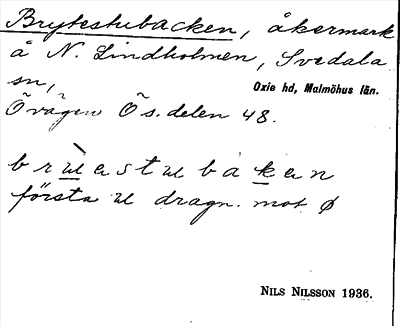 Brytestubacken, åkermark
å N. Lindholmen, Svedala
sn,
Oxie hd, Malmöhus län.
Övägen Ö s. delen 48.
första dragn. mot ø
NILS NILSSON 1936.